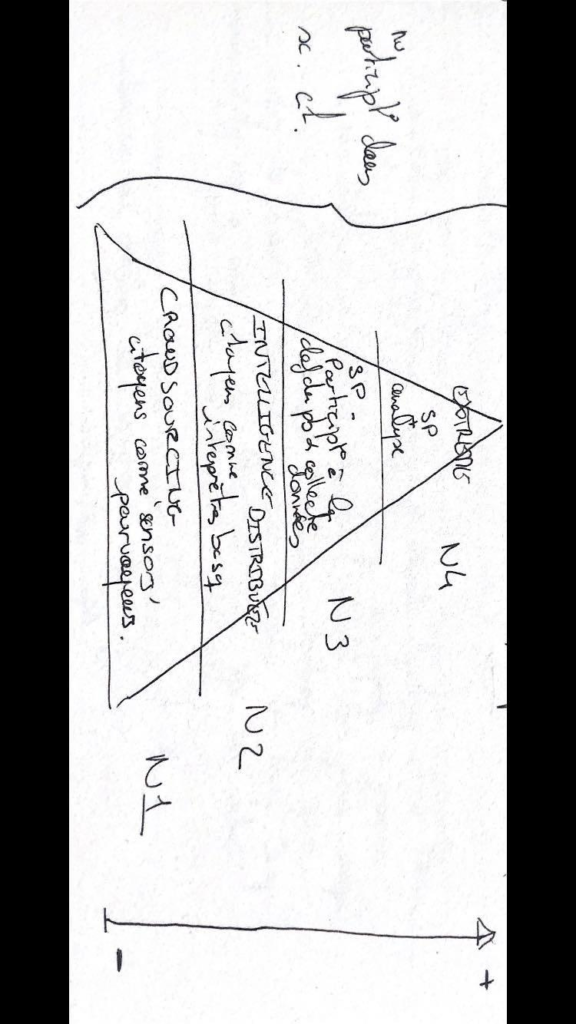 participt° dans
sc. ct.
EXTREME
SP
+ analyse
N4
SP -
Participt° à la
collecte
données
N3
INTELLIGENCE DISTRIBUÉE
citoyens comme
interprètes basq
N2
CROWDSOURCING
citoyens comme 'sensors',
pourvoyeurs.
N1
+
-